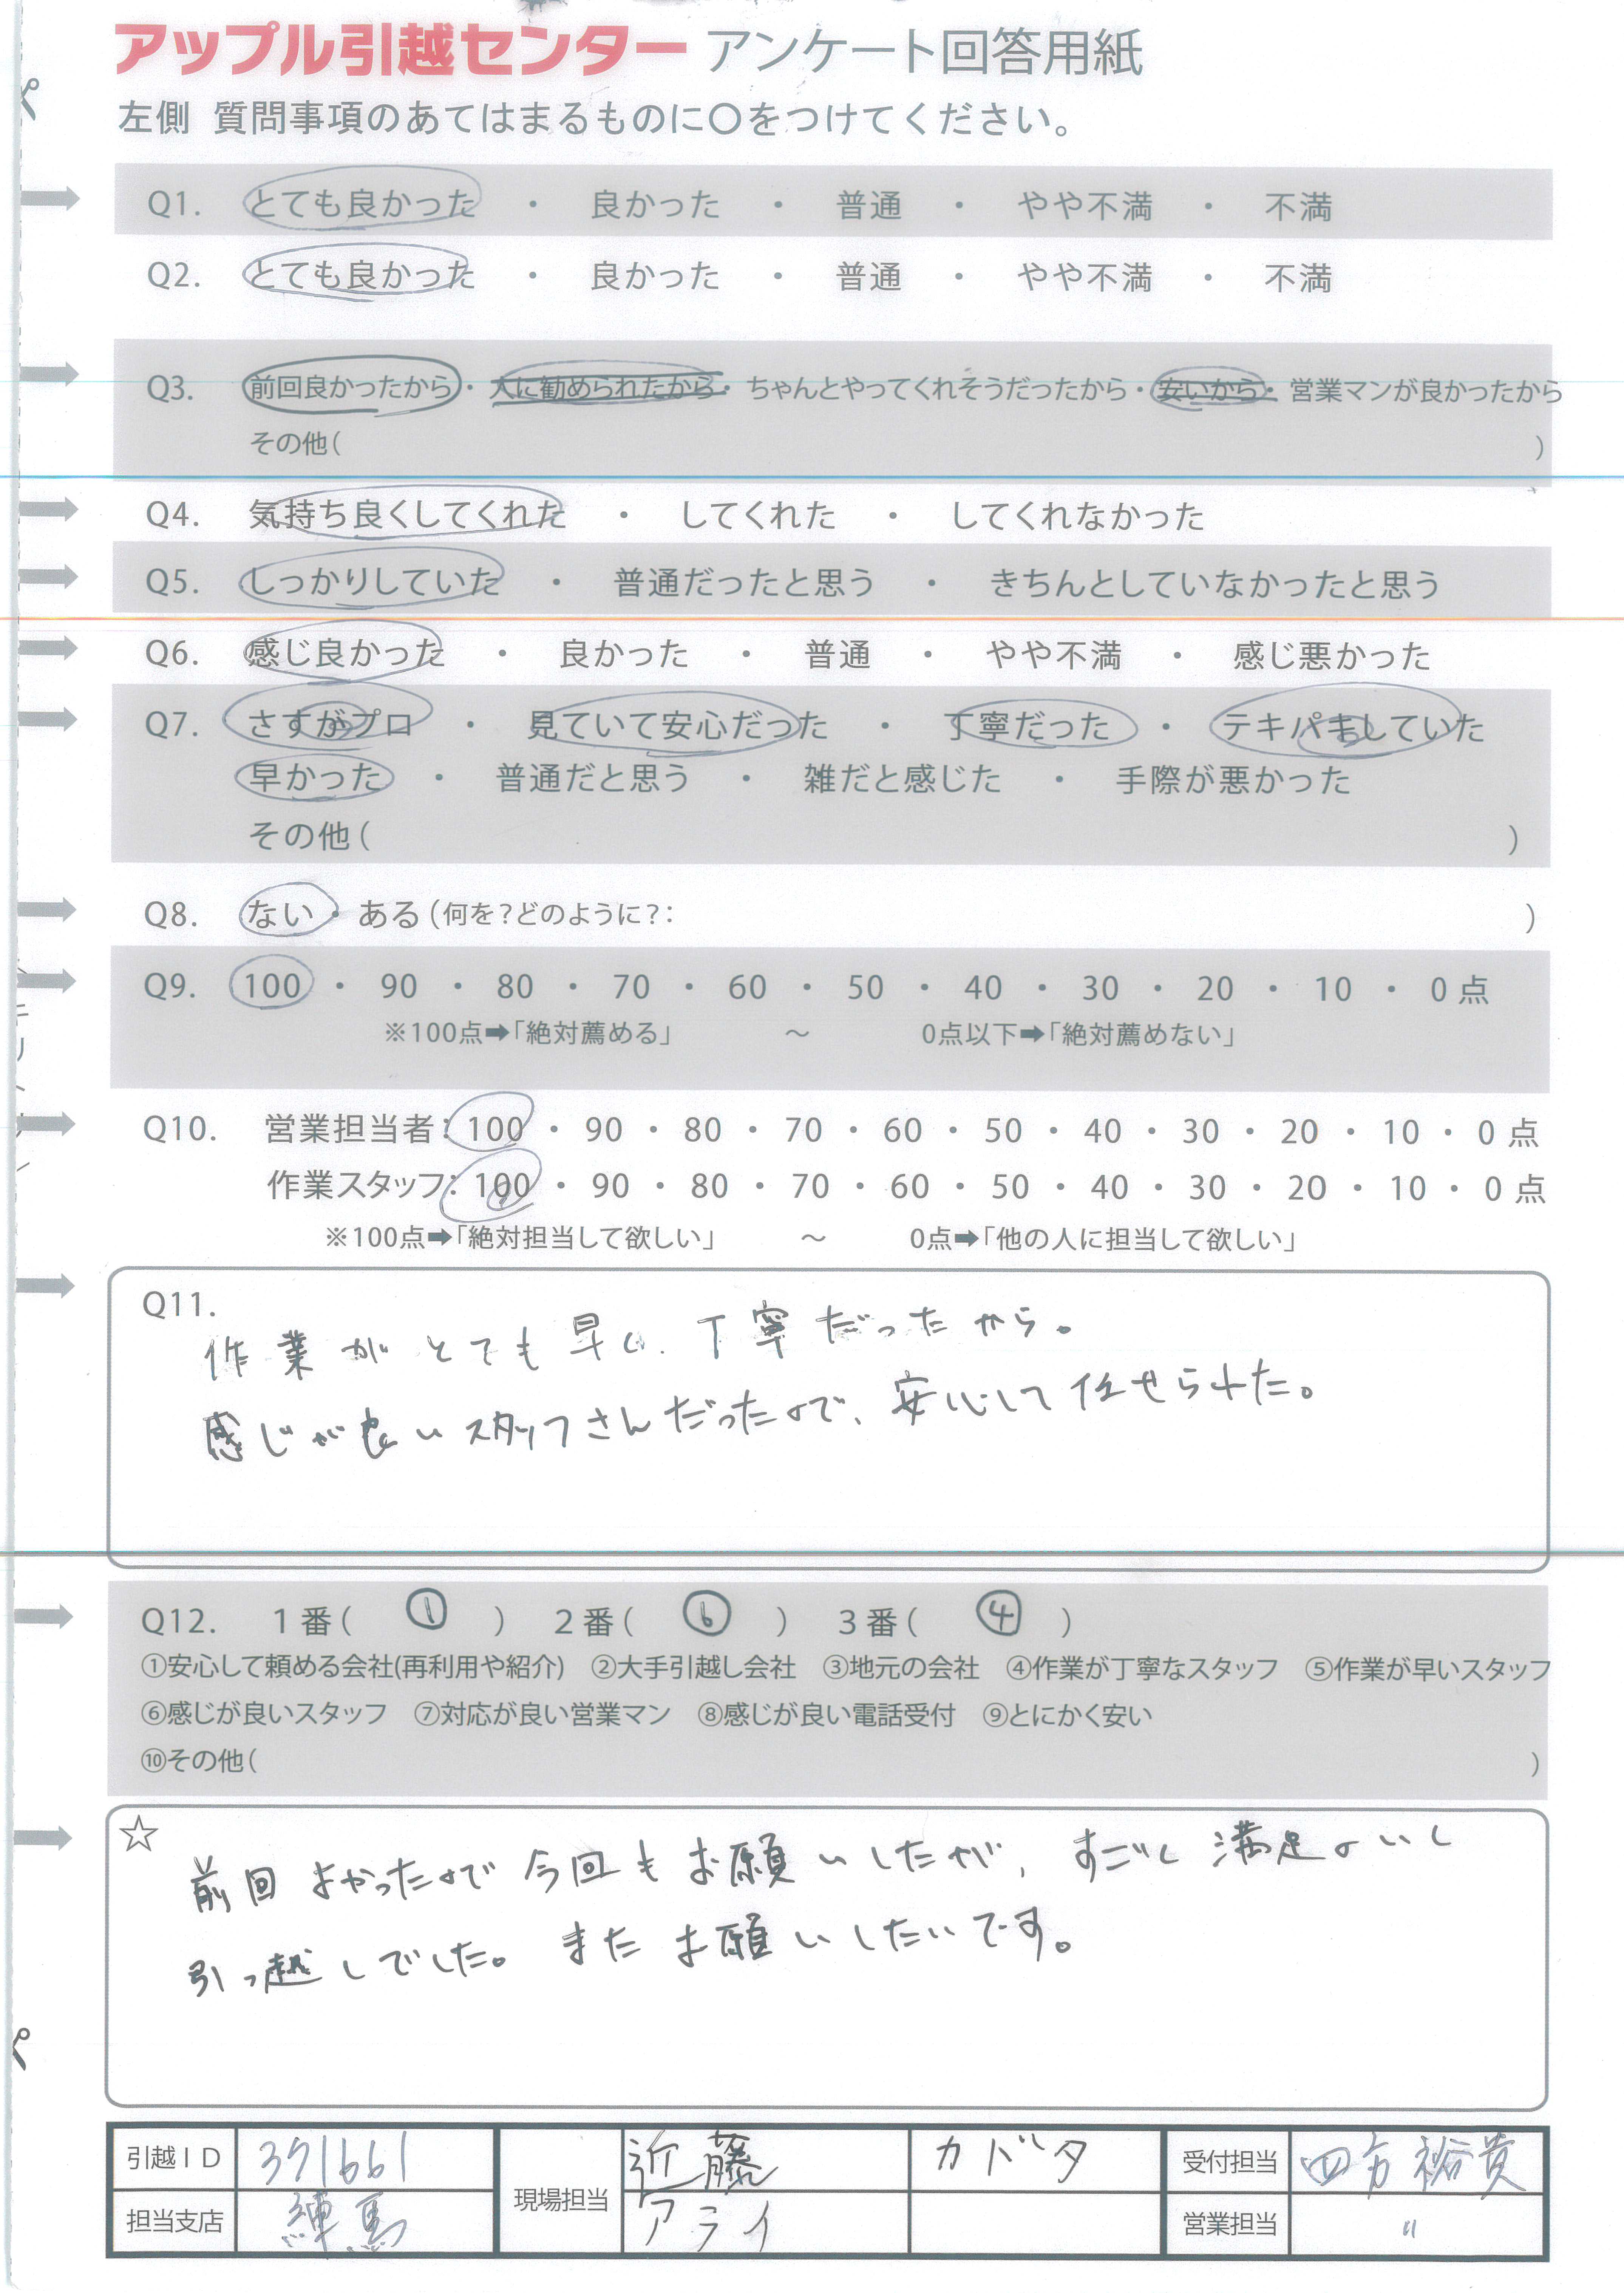 アップル引越センター アンケート回答用紙
左側 質問事項のあてはまるものに〇をつけてください。
Q1. とても良かった ・ 良かった ・ 普通 ・ やや不満 ・ 不満
Q2. とても良かった ・ 良かった ・ 普通 ・ やや不満 ・ 不満
Q3. 前回良かったから・ 人に勧められたから・ ちゃんとやってくれそうだったから・ 安いから・ 営業マンが良かったから
その他( )
Q4. 気持ち良くしてくれた ・ してくれた ・ してくれなかった
Q5. しっかりしていた ・ 普通だったと思う ・ きちんとしていなかったと思う
Q6. 感じ良かった ・ 良かった ・ 普通 ・ やや不満 ・ 感じ悪かった
Q7. さすがプロ ・ 見ていて安心だった ・ 丁寧だった ・ テキパキしていた
早かった ・ 普通だと思う ・ 雑だと感じた ・ 手際が悪かった
その他( )
Q8. ない・ ある(何を?どのように?: )
Q9. 100 ・ 90 ・ 80 ・ 70 ・ 60 ・ 50 ・ 40 ・ 30 ・ 20 ・ 10 ・ 0 点
※100点➡「絶対薦める」 〜 0点以下➡「絶対薦めない」
Q10. 営業担当者: 100 ・ 90 ・ 80 ・ 70 ・ 60 ・ 50 ・ 40 ・ 30 ・ 20 ・ 10 ・ 0 点
作業スタッフ: 100 ・ 90 ・ 80 ・ 70 ・ 60 ・ 50 ・ 40 ・ 30 ・ 20 ・ 10 ・ 0 点
※100点➡「絶対担当して欲しい」 〜 0点➡「他の人に担当して欲しい」
Q11.
作業がとても早い、丁寧だったから。
感じが良いスタッフさんだったので、安心して任せられた。
Q12. 1番( ① ) 2番( ⑥ ) 3番( ④ )
①安心して頼める会社(再利用や紹介) ②大手引越し会社 ③地元の会社 ④作業が丁寧なスタッフ ⑤作業が早いスタッフ
⑥感じが良いスタッフ ⑦対応が良い営業マン ⑧感じが良い電話受付 ⑨とにかく安い
⑩その他( )
☆
前回よかったので今回もお願いしたが、すごく満足のいく
引っ越しでした。またお願いしたいです。
引越ID 371661 現場担当 近藤 カドタ 受付担当 四方裕貴
担当支店 練馬 アライ 営業担当 〃